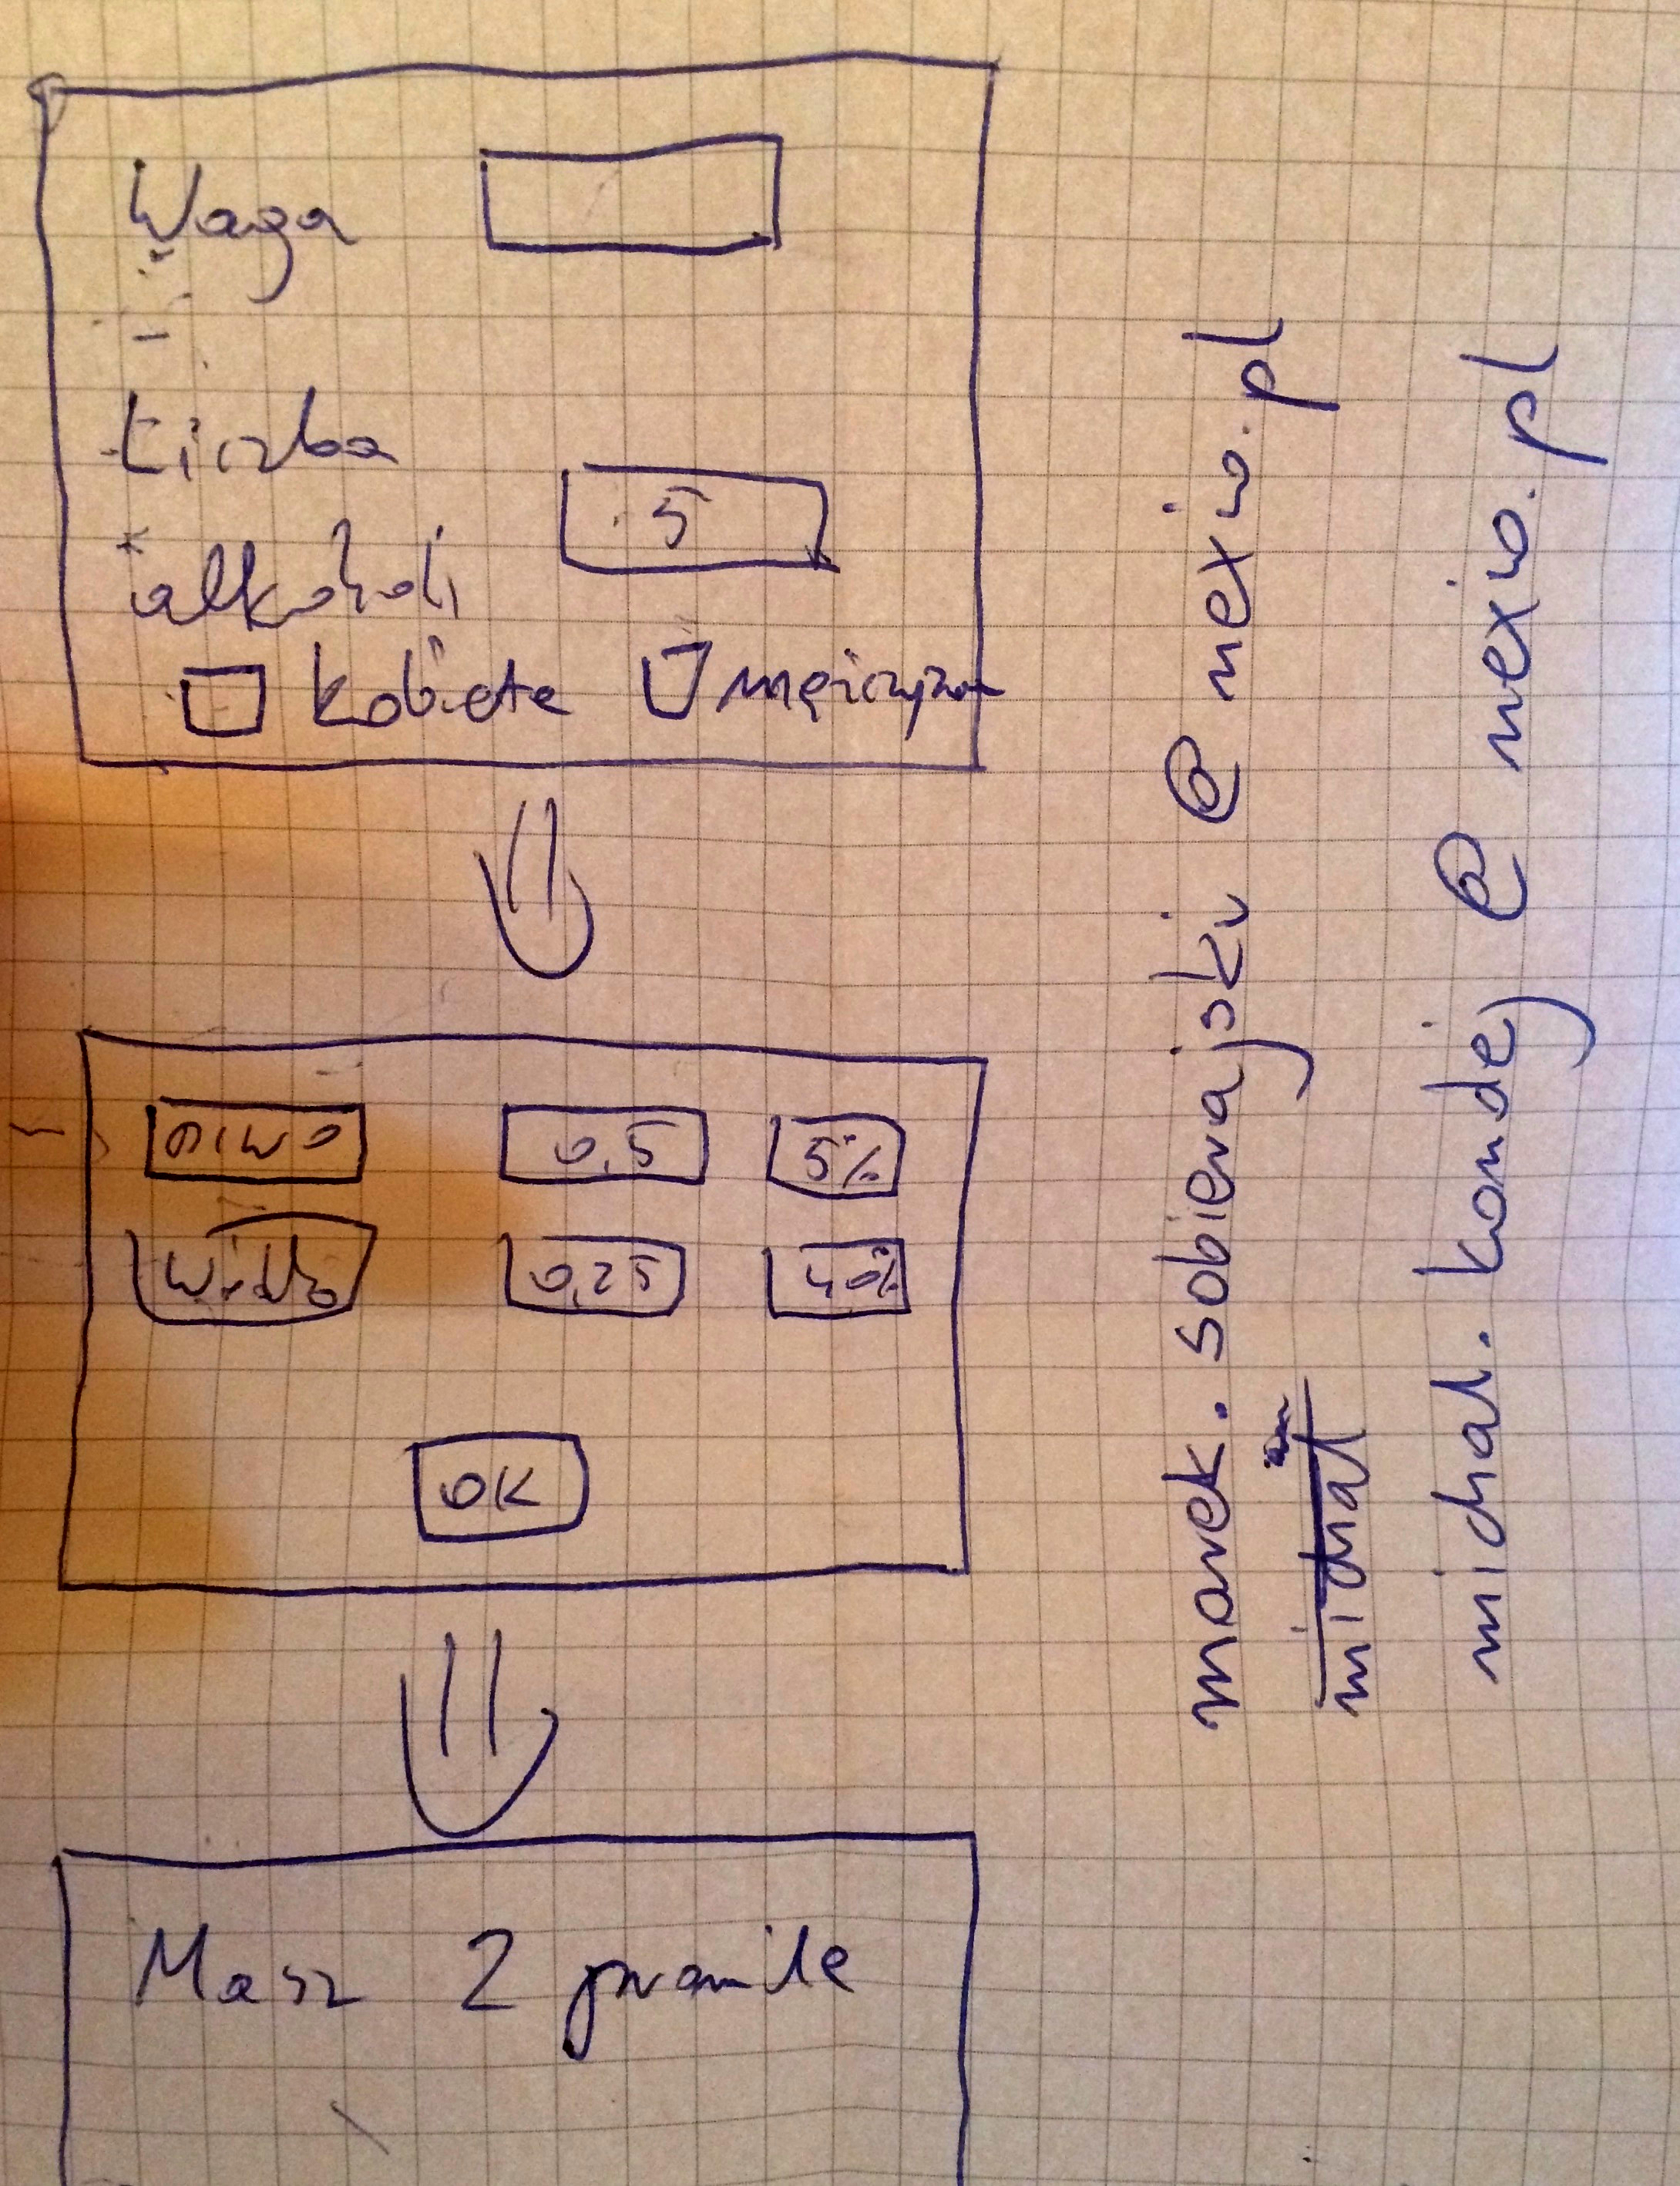 Waga
Liczba
5
alkoholi
kobieta mężczyzna
piwo 0,5 5%
0,25 40%
OK
Masz 2 promile
marek.sobierajski@nexio.pl
michal
michal.kondej@nexio.pl